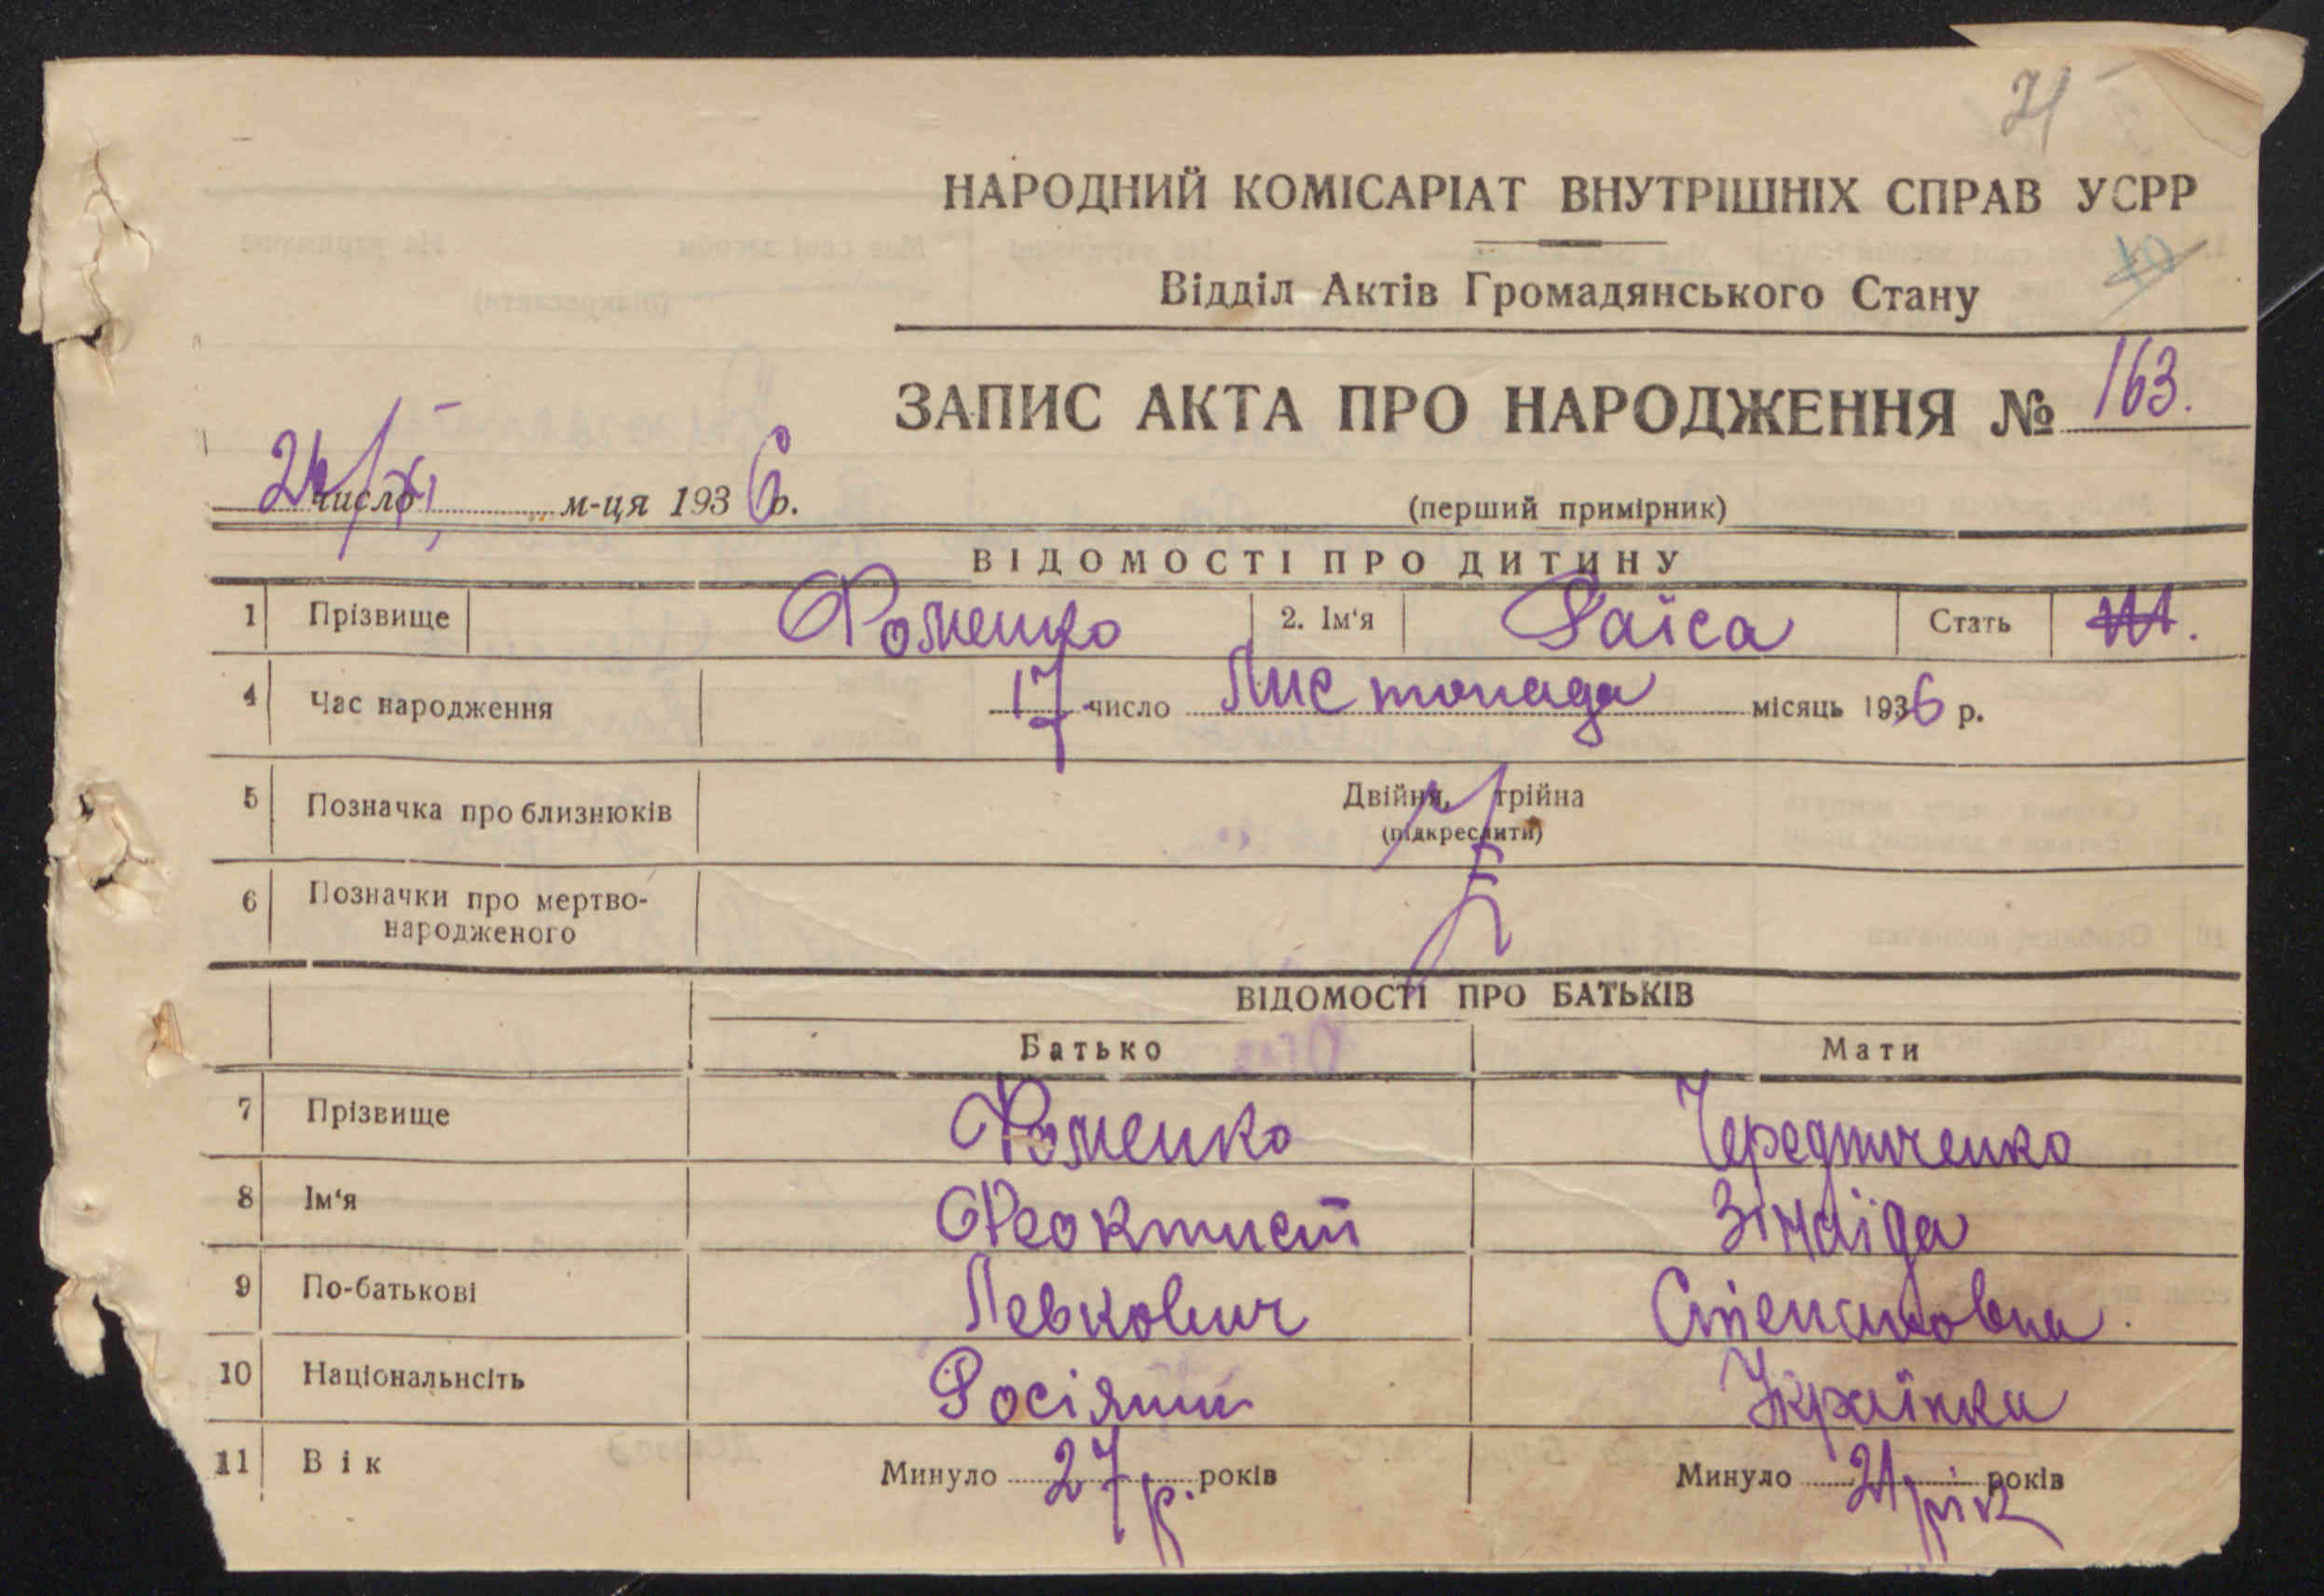 21
НАРОДНИЙ КОМІСАРІАТ ВНУТРІШНІХ СПРАВ УСРР
Відділ Актів Громадянського Стану
ЗАПИС АКТА ПРО НАРОДЖЕННЯ № 163.
число XI м-ця 1936 р.
(перший примірник)
ВІДОМОСТІ ПРО ДИТИНУ
1 Прізвище Фоменко 2. Ім'я Раїса Стать Ж.
4 Час народження 17 число Листопада місяць 1936 р.
5 Позначка про близнюків Двійня, трійна
(підкреслити)
6 Позначки про мертво-
народженого
ВІДОМОСТІ ПРО БАТЬКІВ
Батько Мати
7 Прізвище Фоменко Чередниченко
8 Ім'я Феоктист Зінаїда
9 По-батькові Левкович Степановна.
10 Національнсіть Росіянин Українка
11 Вік Минуло 27 р. років Минуло 21 рік років